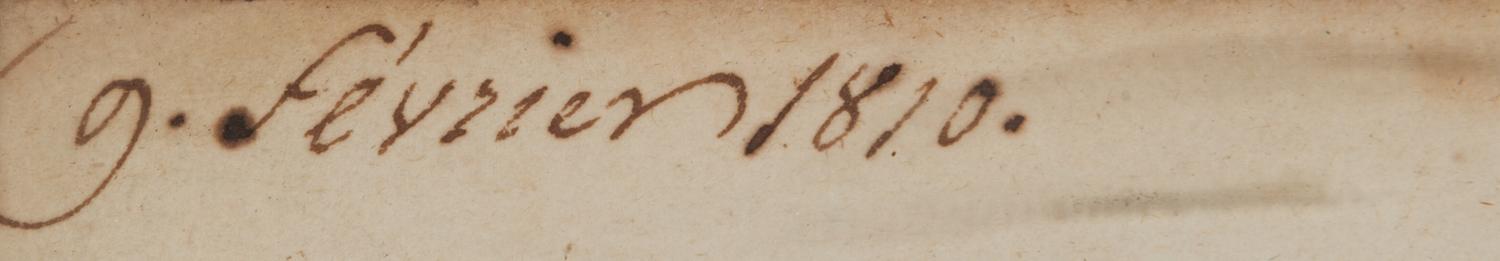 9. Février 1810.